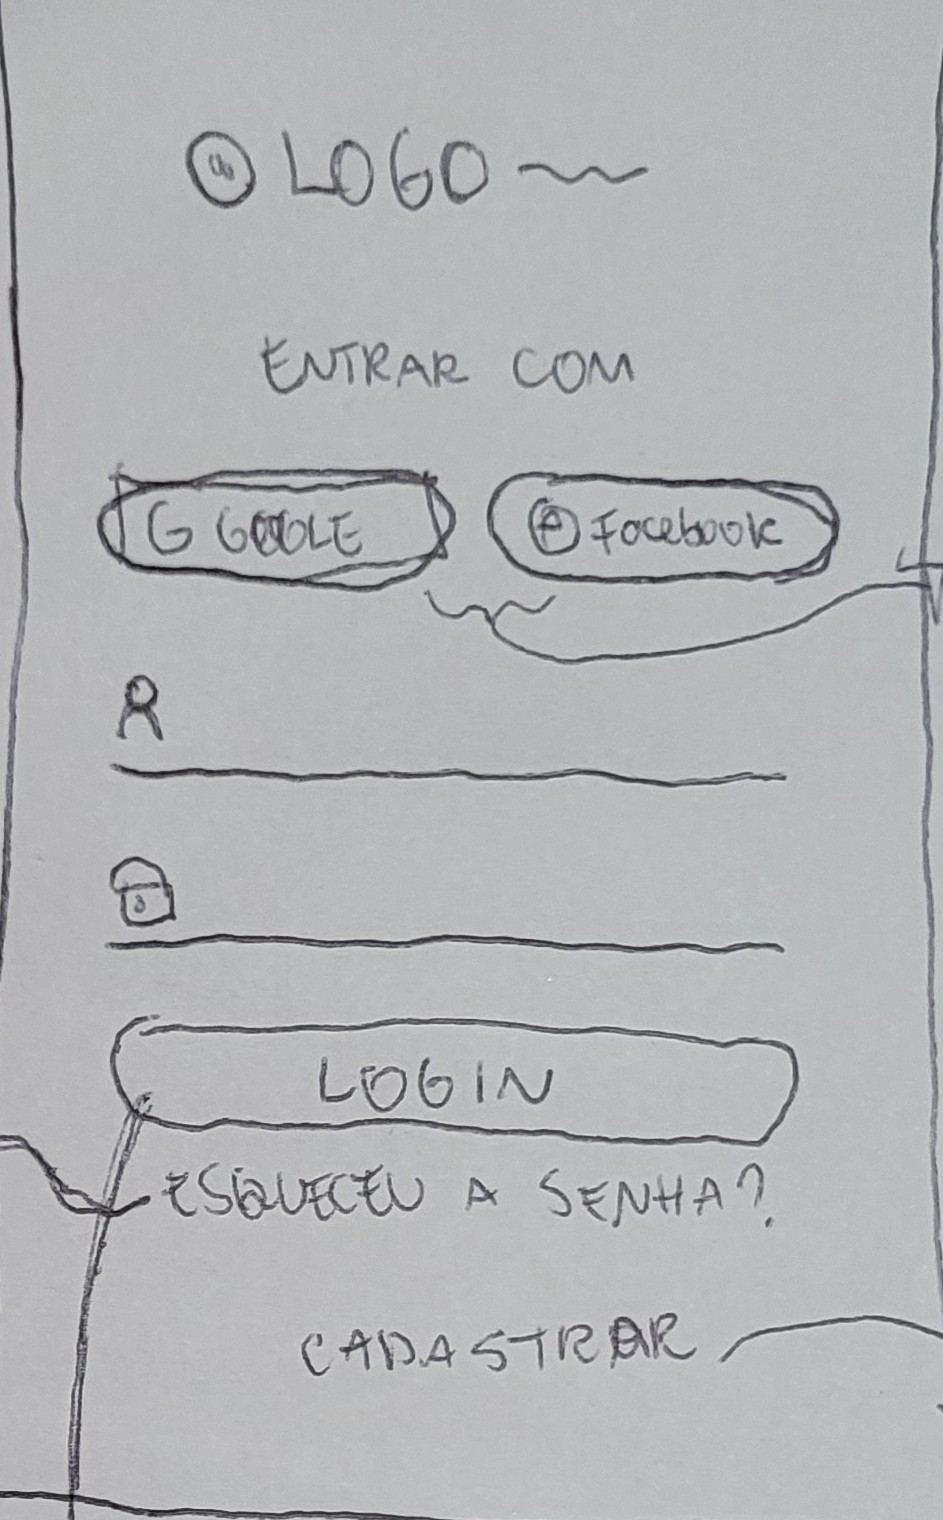 LOGO
ENTRAR COM
G GOOGLE Facebook
LOGIN
ESQUECEU A SENHA?
CADASTRAR